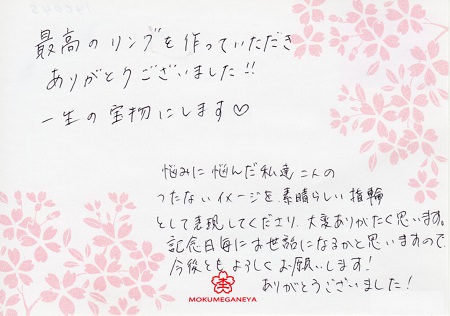 最高のリングを作っていただき
ありがとうございました!!
一生の宝物にします♡
悩みに悩んだ私達二人の
つたないイメージを素晴らしい指輪
として表現してくださり、大変ありがたく思います。
記念日毎にお世話になるかと思いますので
今後ともよろしくお願いします!
ありがとうございました!
MOKUMEGANEYA